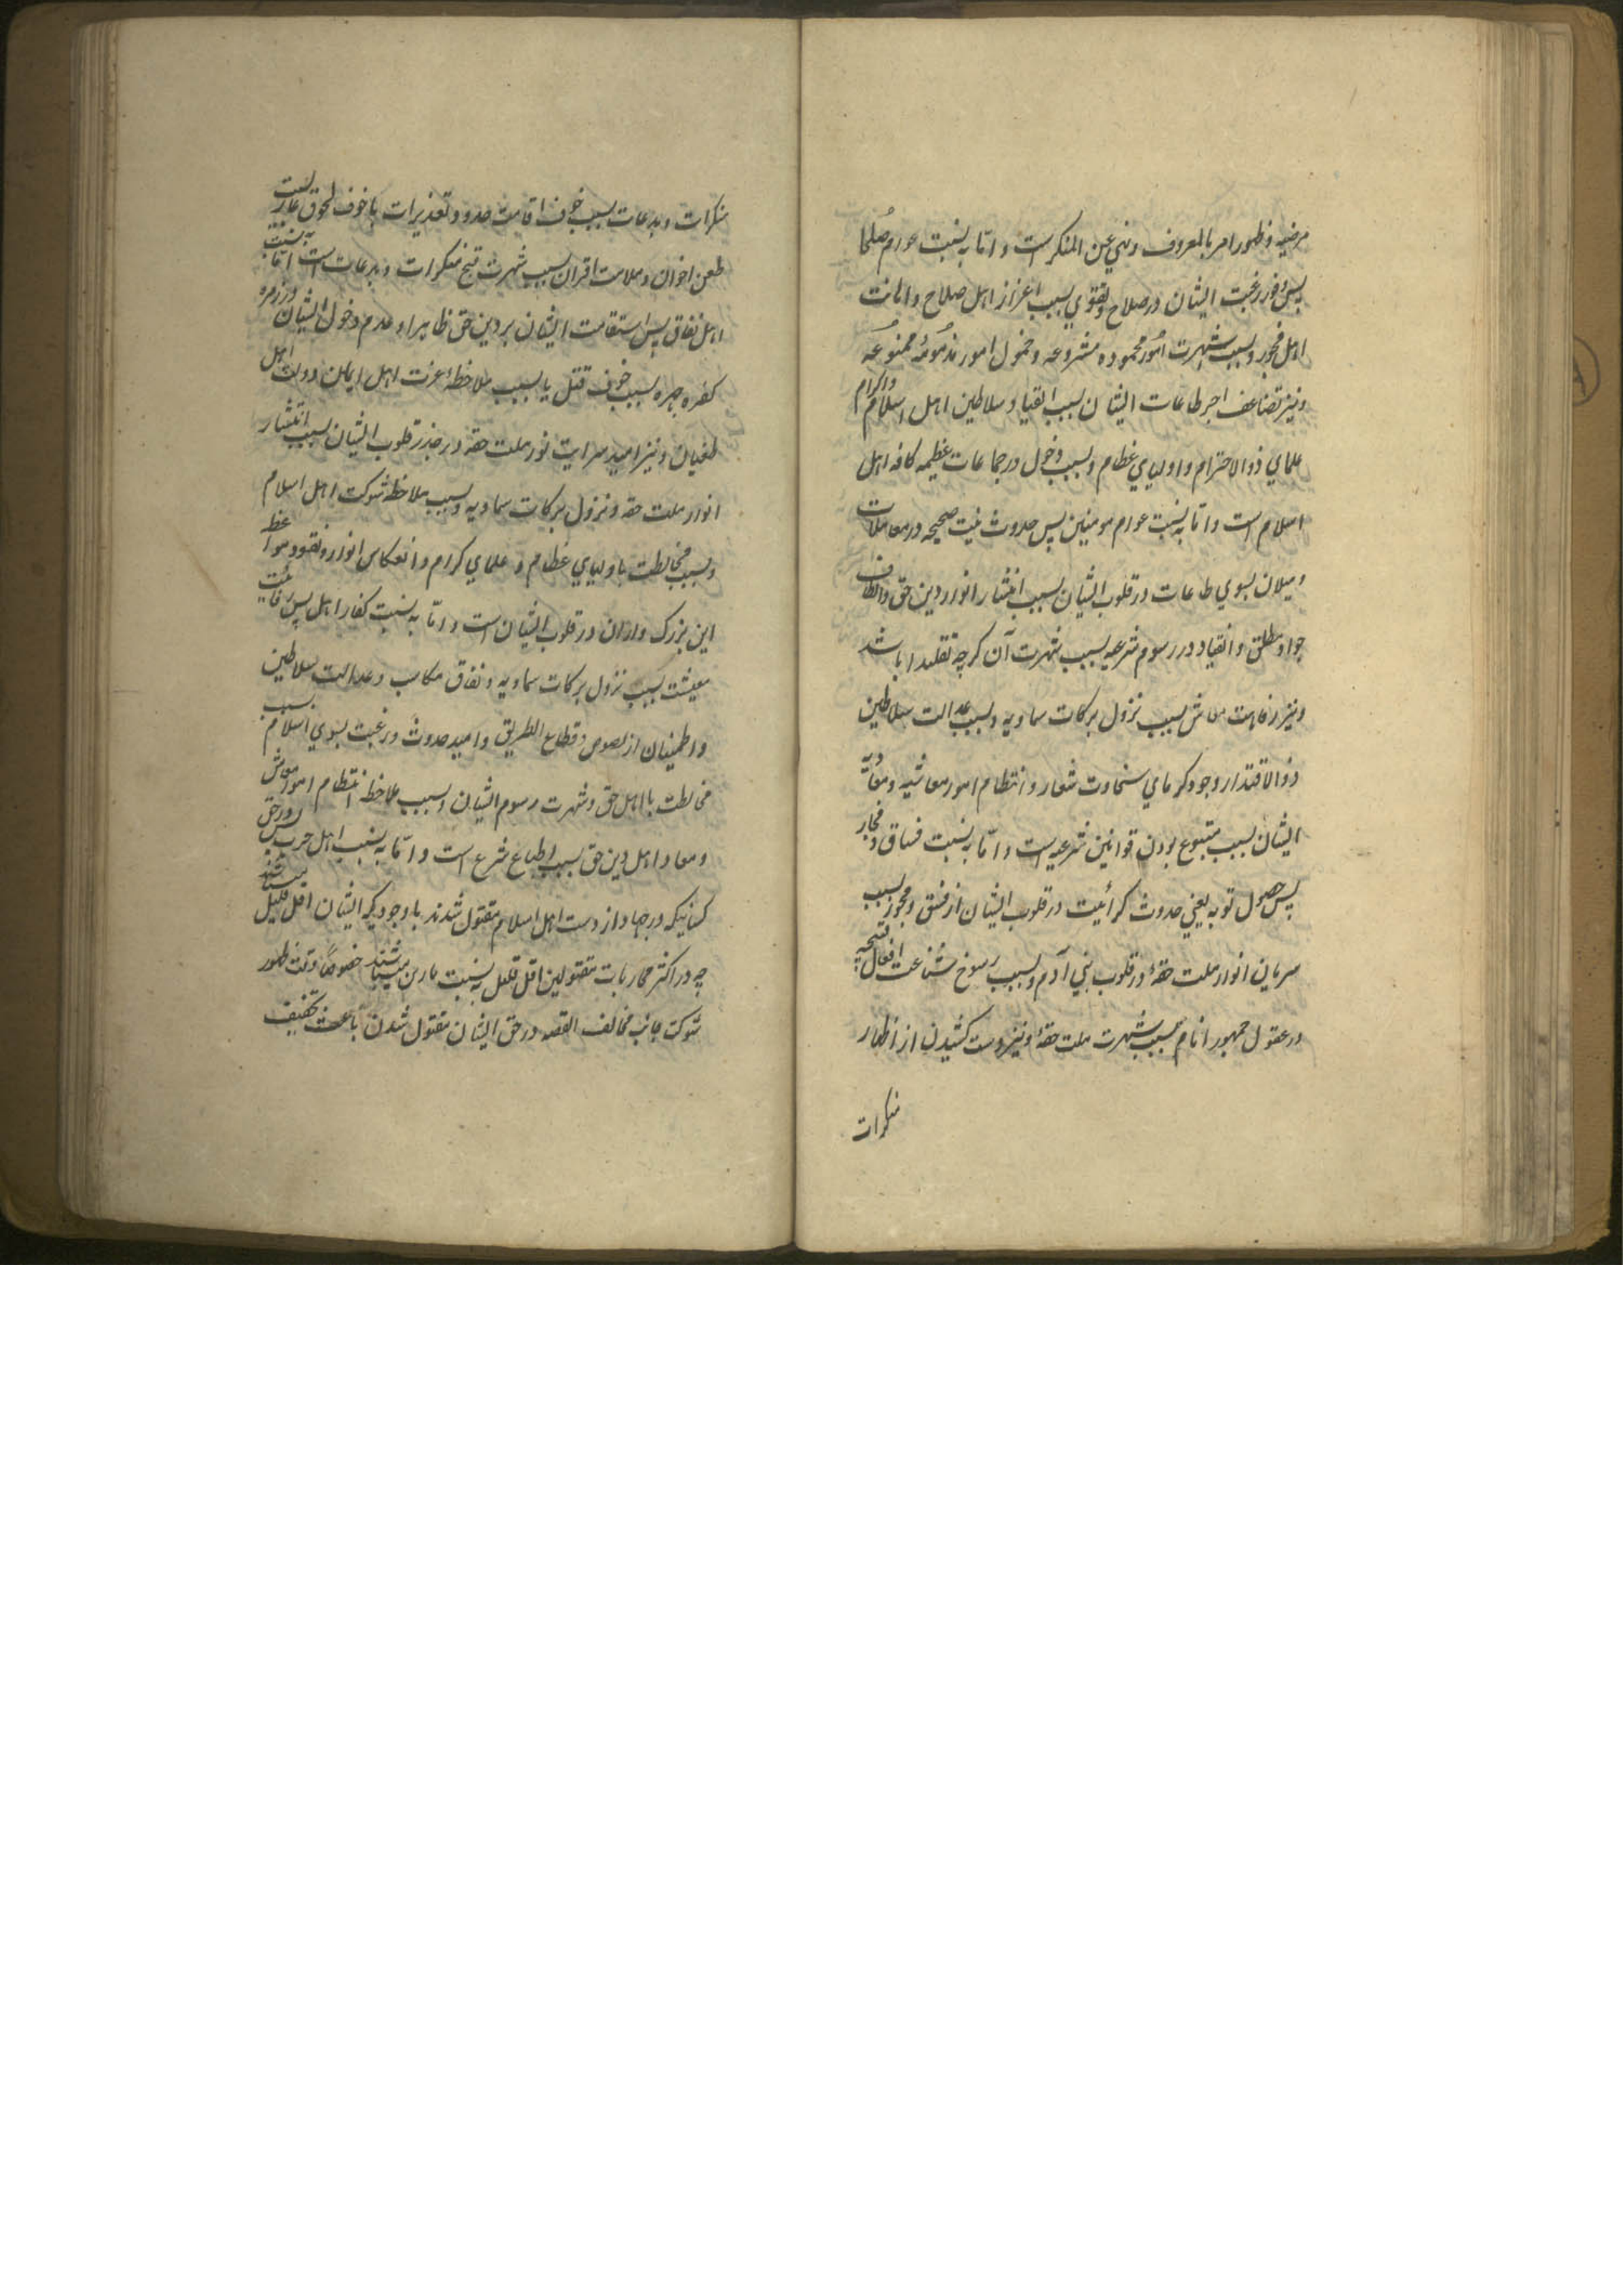 مرضیه و ظهور امر بالمعروف و نهی عن المنکر است و امّا به نسبت عوام صُلحا
پس وفور رغبت ایشان در صلاح و تقوی بسبب اعزاز اهل صلاح و اهانت
اهل فجور و بسبب شهرت امُور محموده مشروعه و خمول امور مذمومهٔ ممنوعه
و نیز تضاعف اجر طاعات ایشان بسبب انقیاد سلاطین اهل اسلام و اکرام
علمای ذوالاحترام و اولیای عظام و بسبب دخول در جماعات عظیمه کافه اهل
اسلام است و امّا به نسبت عوام مومنین پس حدوث نیت صحیحه در معاملات
و میلان بسوی طاعات در قلوب ایشان بسبب انتشار انوار دین حق و الطاف
جواد مطلق و انقیاد در رسوم شرعیه بسبب شهرت آن گرچه تقلیدا باشد
و نیز رفاهت معاش بسبب نزول برکات سماویه و بسبب عدالت سلاطین
ذوالاقتدار و جود کرمای سخاوت شعار و انتظام امور معاشیه و معادیهٔ
ایشان بسبب متبوع بودن قوانین شرعیه است و امّا به نسبت فساق و فجار
پس حصول توبه یعنی حدوث کرائیت در قلوب ایشان از فسق و فجور بسبب
سریان انوار ملت حقهٔ در قلوب بنی آدم و بسبب رسوخ شناعت افعال قبیحه
در عقول جمهور انام بسبب شهرت ملت حقهٔ و نیز دست کشیدن از اظهار
منکرات
منکرات و بدعات بسبب خوف اقامت حدود و تعذیرات یا خوف لحوق عار بسبب
طعن اخوان و ملامت اقران بسبب شهرت قبح منکرات و بدعات است امّا به نسبت
اهل نفاق پس استقامت ایشان بر دین حق ظاهرا و عدم دخول ایشان در زمره
کفره جهره بسبب خوف قتل یا بسبب ملاحظهٔ عزت اهل ایمان و ذلت اهل
طغیان و نیز امید سرایت نور ملت حقه در جذر قلوب ایشان بسبب انتشار
انوار ملت حقه و نزول برکات سماویه و بسبب ملاحظه شوکت اهل اسلام
و بسبب مخالطت با اولیای عظام و علمای کرام و انعکاس انوار و نفوذ مواعظ
این بزرگواران در قلوب ایشان است و امّا به نسبت کفار اهل پس رفاهیت
معیشت بسبب نزول برکات سماویه و نفاق مکاسب و عدالت سلاطین
و اطمینان از لصوص و قطاع الطریق و امید حدوث و رغبت بسوی اسلام بسبب
مخالطت با اهل حق و شهرت رسوم ایشان و بسبب ملاحظه انتظام امور معاش
و معاد اهل دین حق بسبب اطباع شرع است و امّا به نسبت اهل حرب پس در حق
کسانیکه در جهاد از دست اهل اسلام مقتول شدند باوجودیکه ایشان اقل قلیل میباشند
چه در اکثر محاربات مقتولین اقل قلیل به نسبت مارین میباشند خصوصاً وقت ظهور
شوکت جانب مخالف القصه در حق ایشان مقتول شدن باعث تخفیف